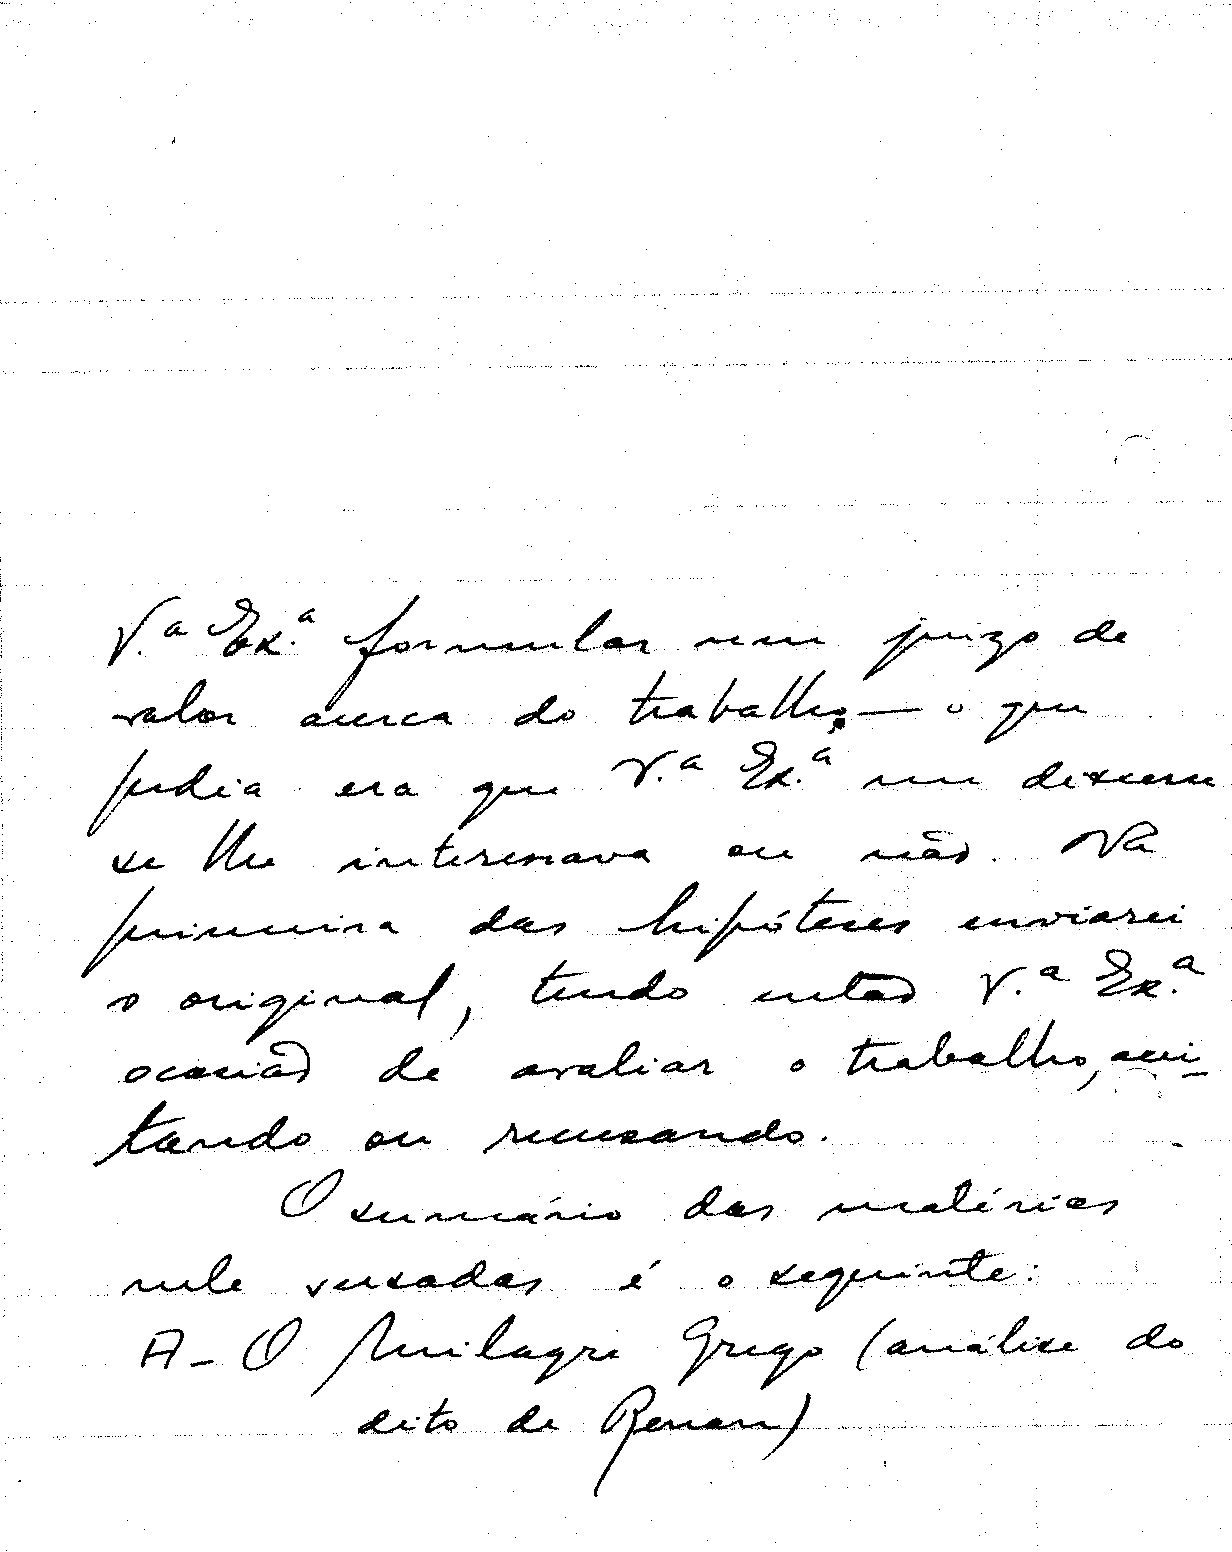 V.ª Ex.ª formular um juizo de
valor acerca do trabalho; — o que
pedia era que V.ª Ex.ª me dissesse
se lhe interessava ou não. Na
primeira das hipóteses enviarei
o original, tendo então V.ª Ex.ª
ocasião de avaliar o trabalho, acei-
tando ou recusando.
O sumário das matérias
nele versadas é o seguinte:
A- O Milagre Grego (análise do
dito de Renan)